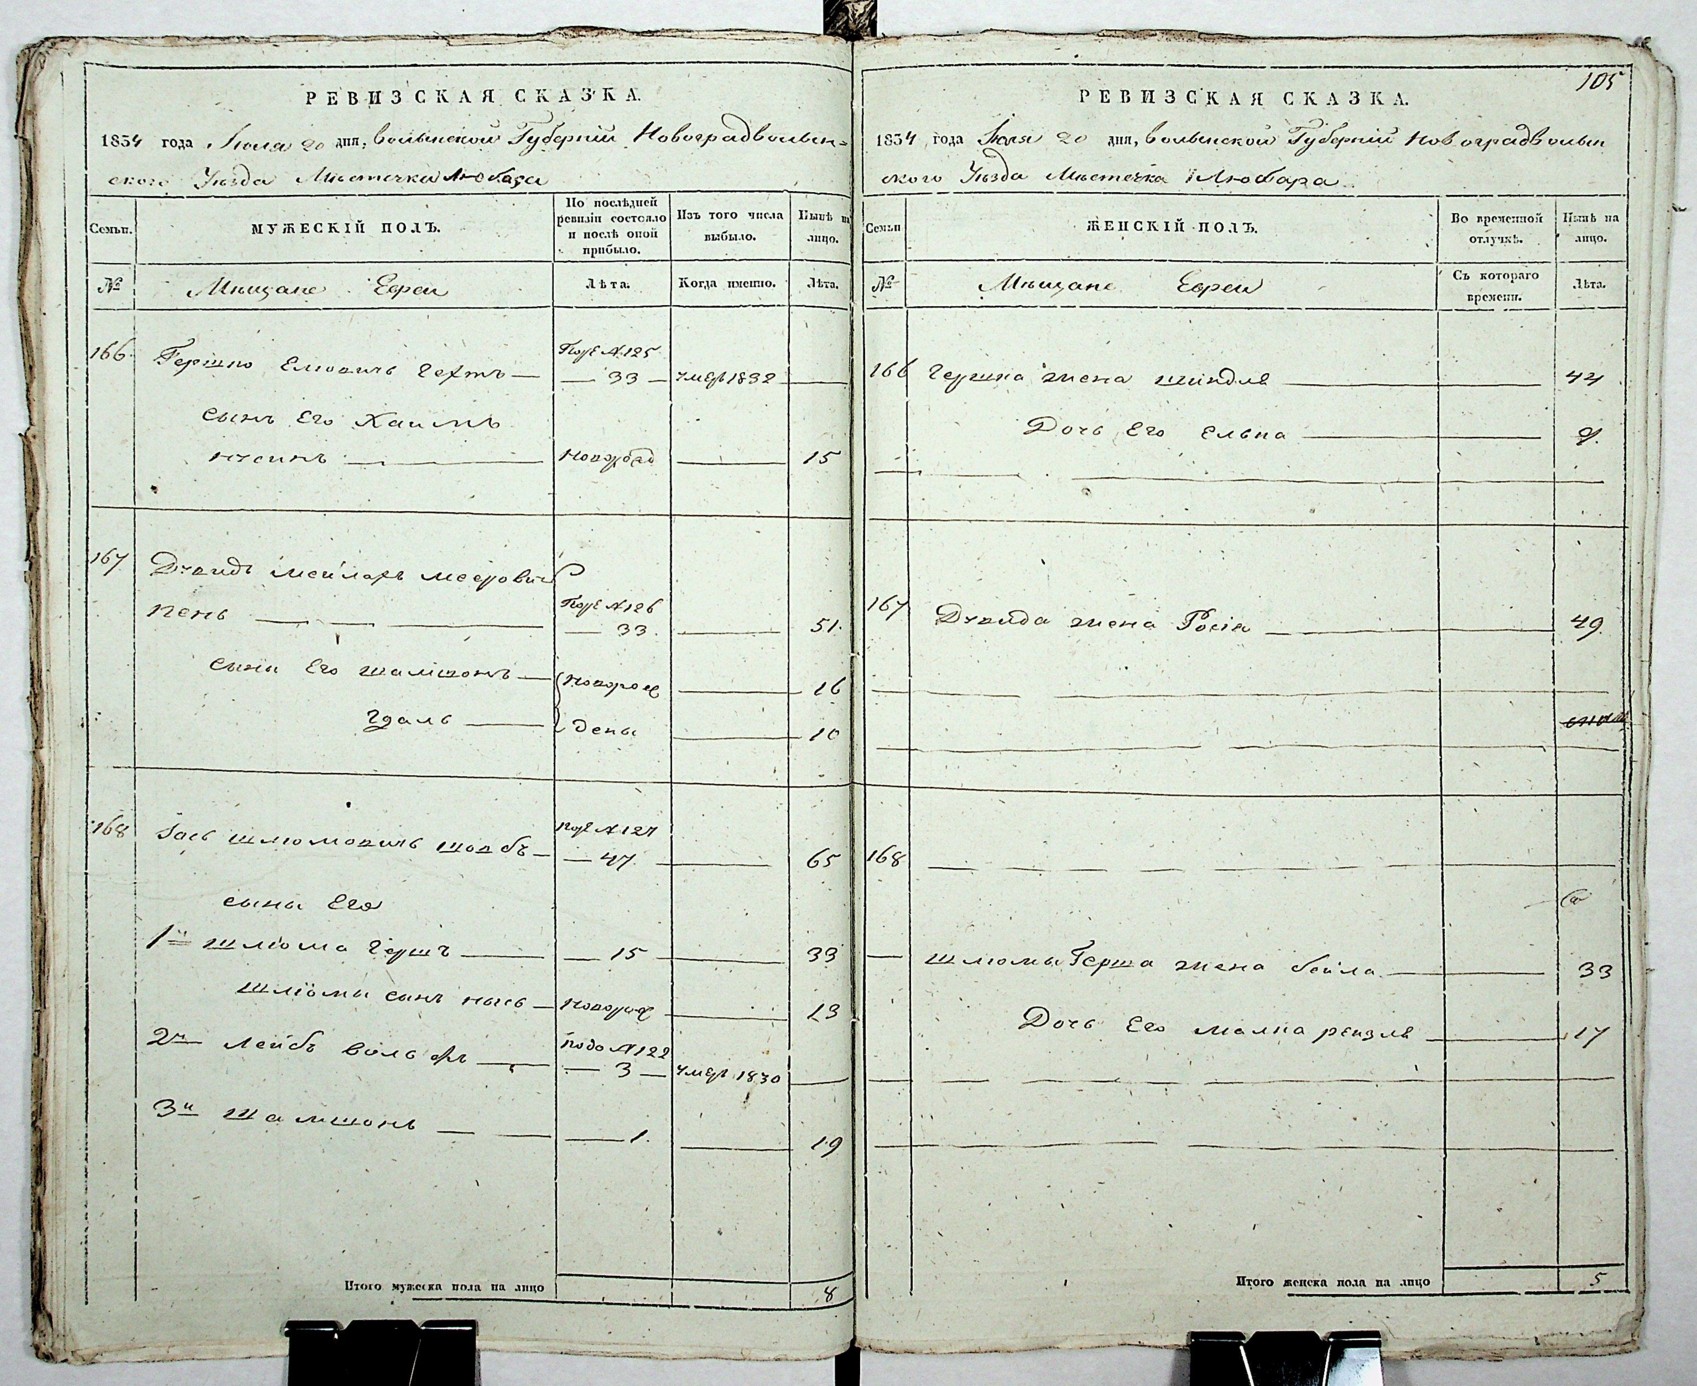 РЕВИЗСКАЯ СКАЗКА.
1834 года Июля 20 дня, Волынской Губерніи Новоградволын=
ского Уѣзда Мѣстечка Любара
Семьи.
МУЖЕСКІЙ ПОЛЪ.
По послѣдней ревизіи состояло и послѣ оной прибыло.
Изъ того числа выбыло.
Нынѣ на лицо.
№
Мѣщане Евреи
Лѣта.
Когда именно.
Лѣта.
166. Гершко Елиовичъ Гехтъ — № 125 — 33 — умеръ 1832 —
сынъ Его Хаимъ
— 15
167 Мееровичъ
— № 126 — 33. — 51.
сыны Его Шамшонъ — 16
— дены — 10
168 Шлиомовичъ — № 127 — 47. — 65
сыны Его
1й Шліома Гершъ — 15 — 33
Шліомы сынъ — 13
2й Лейбъ Вольфъ — подъ № 122 — 3 — умеръ 1830 —
3й Шамшонъ — 1. — 19
Итого мужеска пола на лицо 8
105
РЕВИЗСКАЯ СКАЗКА.
1834 года Июля 20 дня, Волынской Губерніи Новоградволын
ского Уѣзда Мѣстечка Любара
Семьи
ЖЕНСКІЙ ПОЛЪ.
Во временной отлучкѣ.
Нынѣ на лицо.
№
Мѣщане Евреи
Съ котораго времени.
Лѣта.
166 Гершка жена Шиндля — 44
Дочь Его Элька — 9.
167 Давида жена Росія — 49.
168
Шлиомы Герша жена Бейла — 33
Дочь Его Малка Рейзля — 17
Итого женска пола на лицо 5